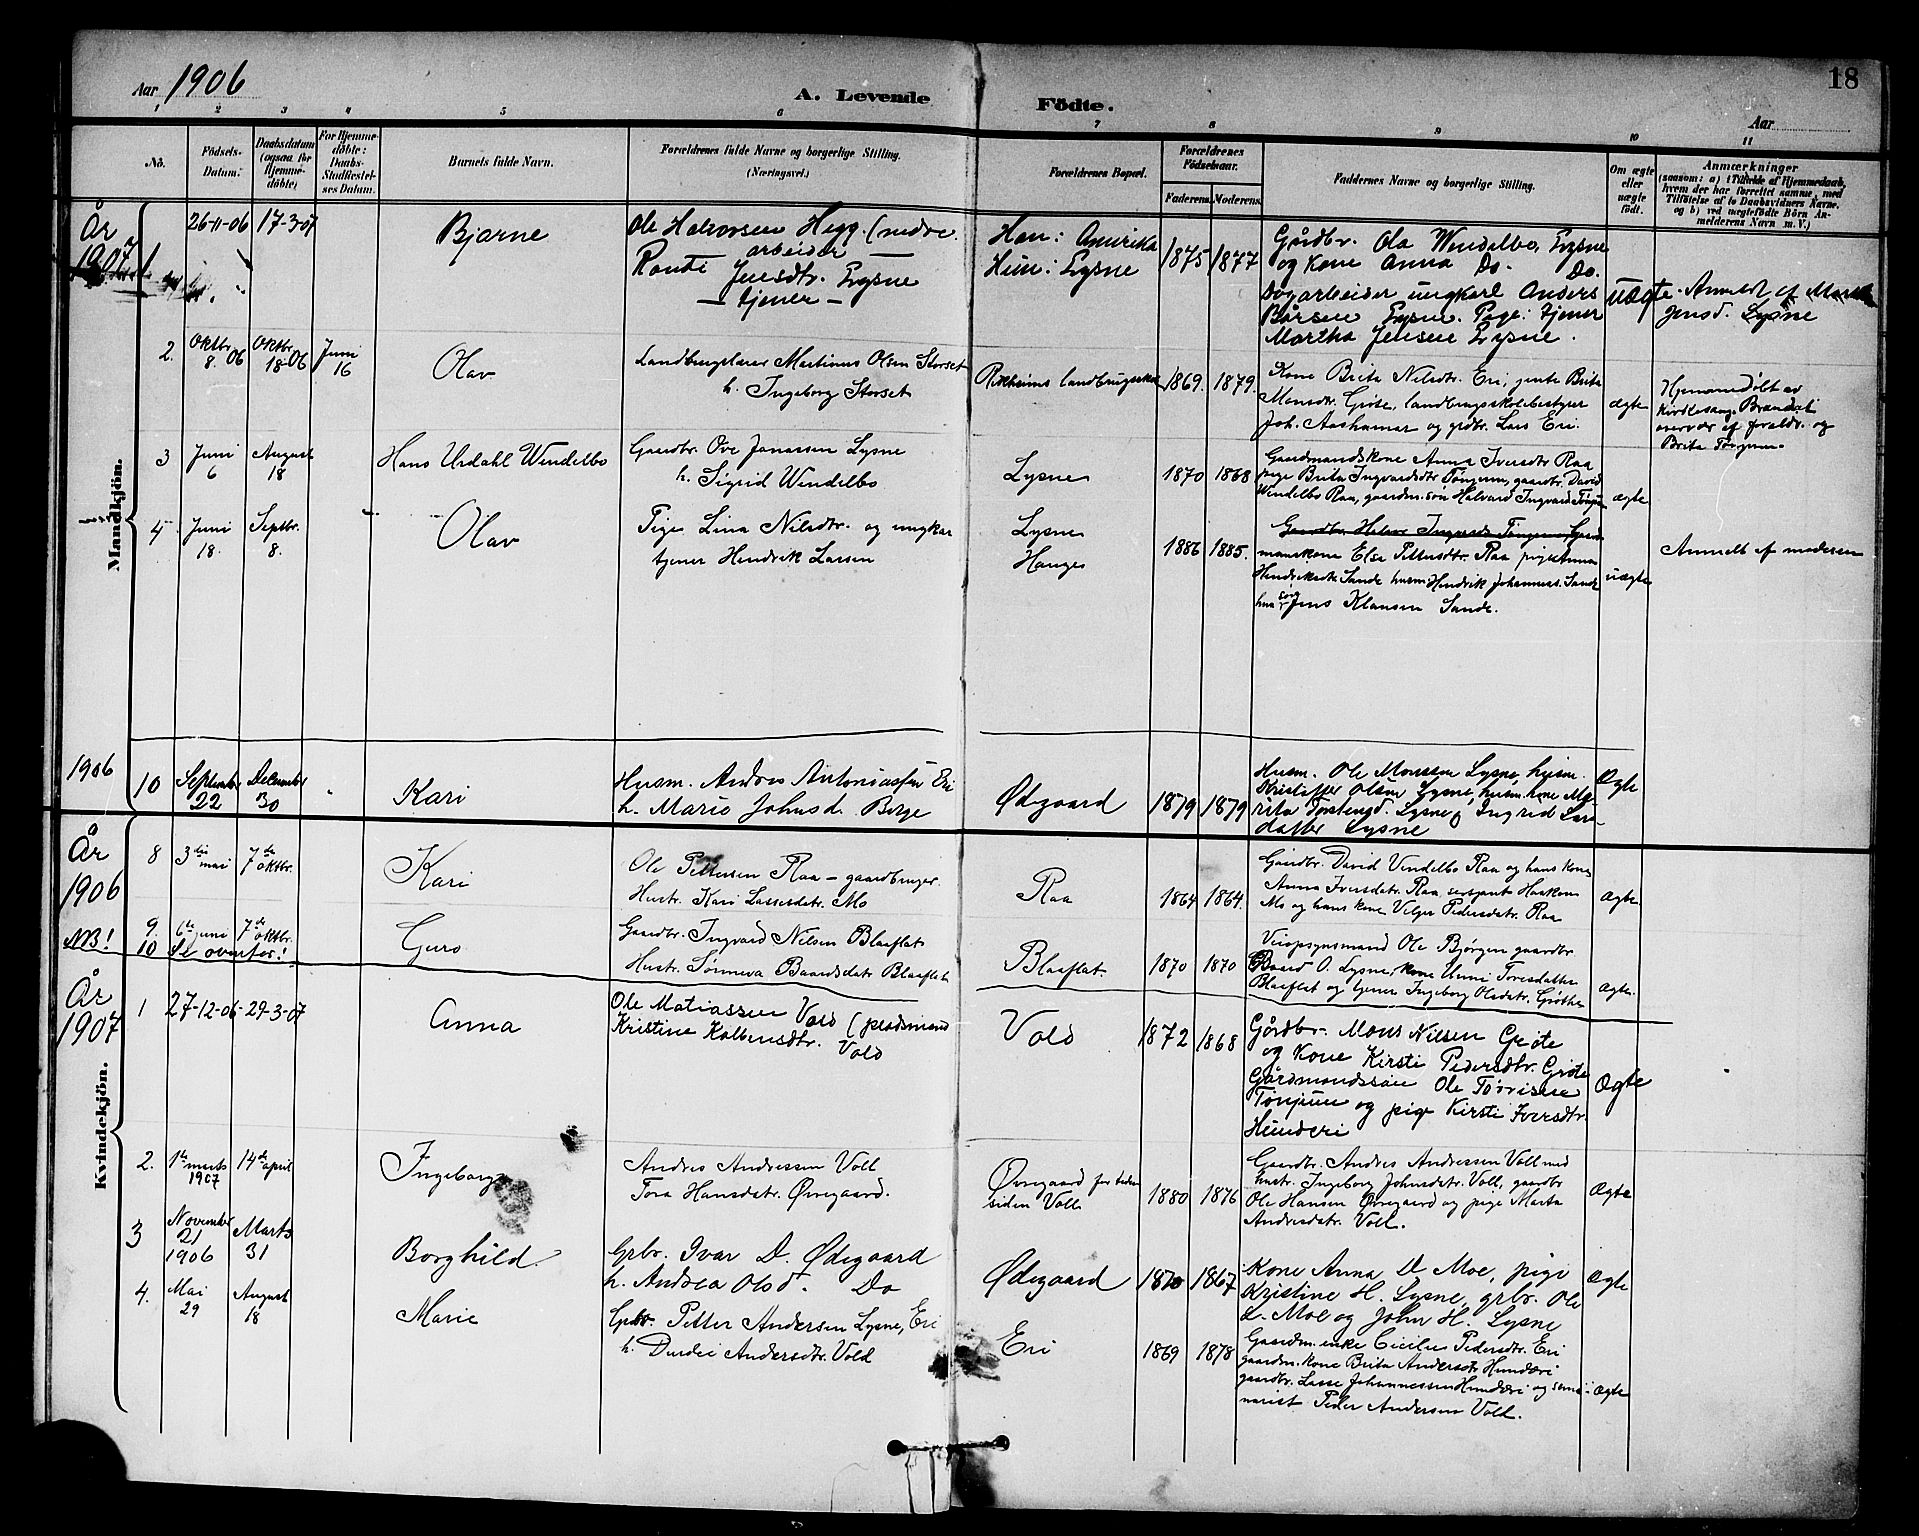 Aar 1906
A. Levende
Födte.
18
Aar
1 2 3 4 5 6 7 8 9 10 11
No.
Födsels-
Datum.
Daabsdatum
(ogsaa for
Hjemme-
döbte)
For Hjemme-
döbte:
Daabs-
Stadfæstel-
ses Datum.
Barnets fulde Navn.
Forældrenes fulde Navne og borgerlige Stilling.
(Næringsvei.)
Forældrenes Bopæl.
Forældrenes
Födselsaar.
Faderens. Moderens.
Faddernes Navne og borgerlige Stilling.
Om ægte
eller
uægte
födt.
Anmærkninger
(saasom: a) i Tilfælde af Hjemmedaab,
hvem der har forrettet samme, med
Tilföielse af to Daabsvidners Navne.
og b) ved uægtefödte Börn An-
melderens Navn m. V.)
Mandkjön.
År
1907
26-11-06 17-3-07
Bjarne
Ole Halvorsen Hegg (medre.
arbeider —
Randi Jensdtr. Lysne
— tjener —
Han: Amerika
Hun: Lysne
1875 1877
Gårdbr. Ola Wendelbo, Lysne
og Kone Anna Do. Do.
Dagarbeider ungkarl Anders
Bårsen Lysne. Pige: tjener
Martha Jensen Lysne.
uægte
Anmeldt af Martha
Jensd. Lysne
2.
Oktbr
8. 06
Oktbr
18-06
Juni
16
Olav
Landbrugslærer Martinus Olsen Storset
h. Ingeborg Storset
Rikheims landbrugsskol
1869. 1879.
Kone Brita Nilsdtr. Eri, jente Brita
Monsdtr. Grøte, landbrugsskolebestyrer
Joh. Aashamar og grdbr. Lars Eri.
ægte
Hjemmedøbt av
kirkesang. Brandal
overvær af foreldr. og
Brita Tørgum
3
Juni
6
August
18
Hans Urdahl Wendelbo
Gaardbr. Ove Jonassen Lysne
h. Sigrid Wendelbo
Lysne
1870 1868
Gaardmandskone Anna Iversdtr Raa
pige Brita Ingvardsdtr Tønjum, gaardbr. David
Wendelbo Raa, gaardm. søn Halvard Ingvards Tønjum
ægte
4
Juni
18.
Septbr.
8.
Olav
Pige Lina Nilsdtr. og ungkar
tjener Hendrik Larsen
Lysne
Hauges
1886 1885.
Gaardbr Halvor Ingvards Tønjum, Gaard-
manskone Else Pettersdtr. Raa pige Anna
Hendriksdtr Sande husm Hendrik Johanness. Sande
husm søn Jens Klausen Sande.
uægte
Anmeldt af moderen
1906
10
September
22
December
30
Kari
Husm. Andres Antoniassen Eri
h. Marie Johnsd. Borge
Ødegaard
1879 1879
Husm. Ole Monssen Lysne, husm.
Kristoffer Olsen Lysne, husm. kone Ma-
rita Torstensd. Lysne, Ingrid Lars-
datter Lysne
Ægte
Kvindekjön.
År
1906
8
3die
mai
7de
oktbr.
Kari
Ole Pettersen Raa — gaardbruger
Hustr. Kari Lassesdatr. Mo
Raa
1864 1864.
Gaardbr. David Vendelbo Raa og hans kone
Anna Iversdatr. Raa sersjant Haakon
Mo og hans kone Velger Pedersdatr. Raa
Ægte.
9.
6te juni
7de oktbr.
Guro
Gaardbr. Ingvard Nilsen Blaaflat
Hustr. Sønneva Baardsdatr Blaaflat
Blaaflat.
1870 1870
Veiopsynsmand Ole Bjørgen gaardbr
Baard O. Lysne, kone Unni Toresdatter
Blaaflat og tjener Ingeborg Olsdatr. Grøthe
Ægte.
NB! 10 Se ovenfor!
År
1907
1
27-12-06 29-3-07
Anna
Ole Matiassen Vold (pladsmand
Kristine Kolbensdtr. Vold
Vold
1872 1868
Gårdbr. Mons Nilsen Grøte
og Kone Kirsti Pedersdtr. Grøte
Gårdmandssøn Ole Torrisen
Tønjum og pige Kirsti Iversdtr.
Hunderi
Ægte
2.
1te marts
1907
14de april
Ingeborg
Andres Andressen Voll
Tora Hansdatr. Øvregaard.
Øvregaard for tiden
siden Voll
1880 1876
Gaardbr. Andres Andressen Voll med
hustr. Ingeborg Johnsdatr. Voll, gaardbr
Ole Hansen Øvregaard og pige Marta
Andresdatr. Voll.
Ægte
3
November
21
1906
Marts
31
Borghild.
Grbr. Ivar D. Ødegaard
h. Andrea Olsd. Do
Ødegaard
1870 1867
Kone Anna D Moe, pige
Kristine H. Lysne, grbr. Ole
L. Moe og John H. Lysne
Ægte
4.
Mai
29
August
18
Marie
Gbr. Petter Andersen Lysne, Eri
h. Durdei Andersdtr. Vold
Eri
1869 1878
Gaardm. enke Cecilie Pedersdtr. Eri
gaardm. kone Brita Andersdtr Hunderi
gaardbr. Lasse Johannessen Hunderi og semi-
narist Peder Andersen Voll.
Ægte